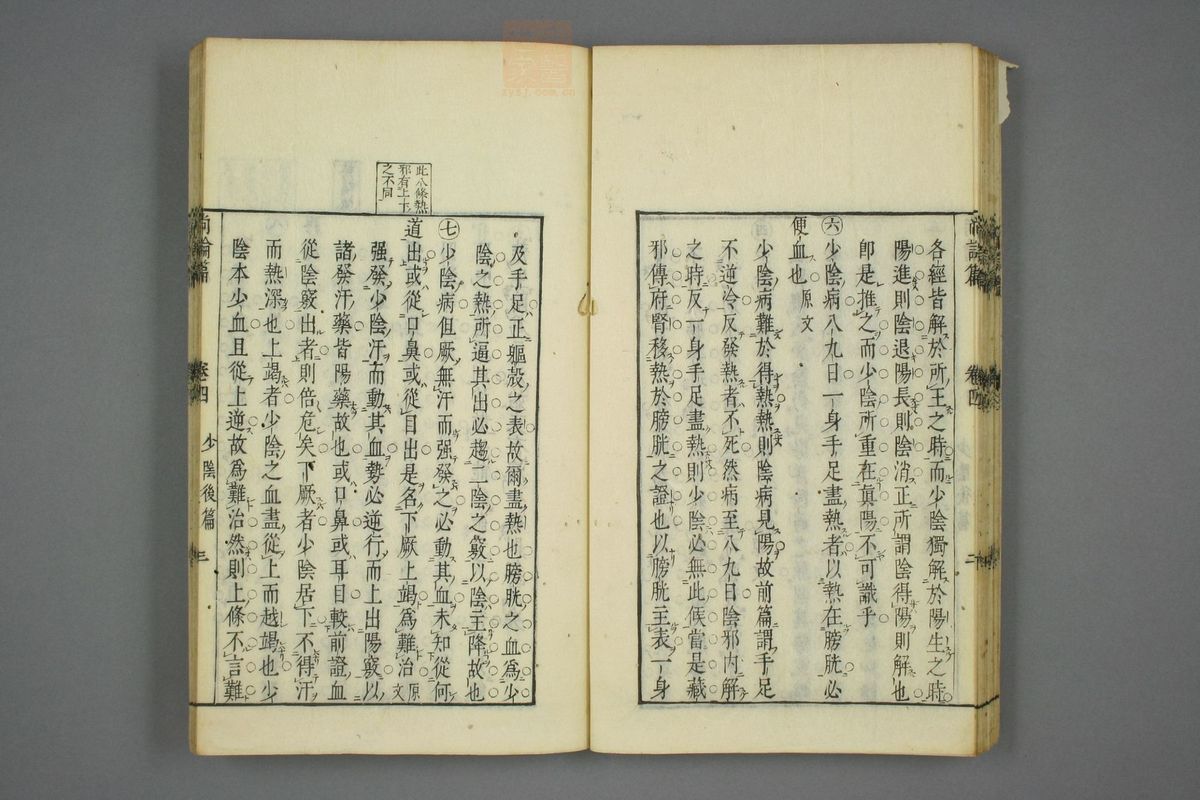 各經皆解於所王之時而少陰獨解於陽生之時
陽進則陰退陽長則陰消正所謂陰得陽則解也
卽是推之而少陰所重在眞陽不可識乎
㊅少陰病八九日一身手足盡熱者以熱在膀胱必
便血也原文
少陰病難於得熱熱則陰病見陽故前篇謂手足
不逆冷反發熱者不死然病至八九日陰邪內解
之時反一身手足盡熱則少陰必無此候當是藏
邪傳府腎移熱於膀胱之證也以膀胱主表一身
尚論篇 卷四 二
及手足正軀殼之表故爾盡熱也膀胱之血爲少
陰之熱所逼其出必趨二陰之竅以陰主降故也
此八條熱
邪有上下
之不同
㊆少陰病但厥無汗而强發之必動其血未知從何
道出或從口鼻或從目出是名下厥上竭爲難治原文
强發少陰汗而動其血勢必逆行而上出陽竅以
諸發汗藥皆陽藥故也或口鼻或耳目較前證血
從陰竅出者則倍危矣下厥者少陰居下不得汗
而熱深也上竭者少陰之血盡從上而越竭也少
陰本少血且從上逆故爲難治然則上條不言難
尚論篇 卷四 少陰後篇 三
zysj.com.cn